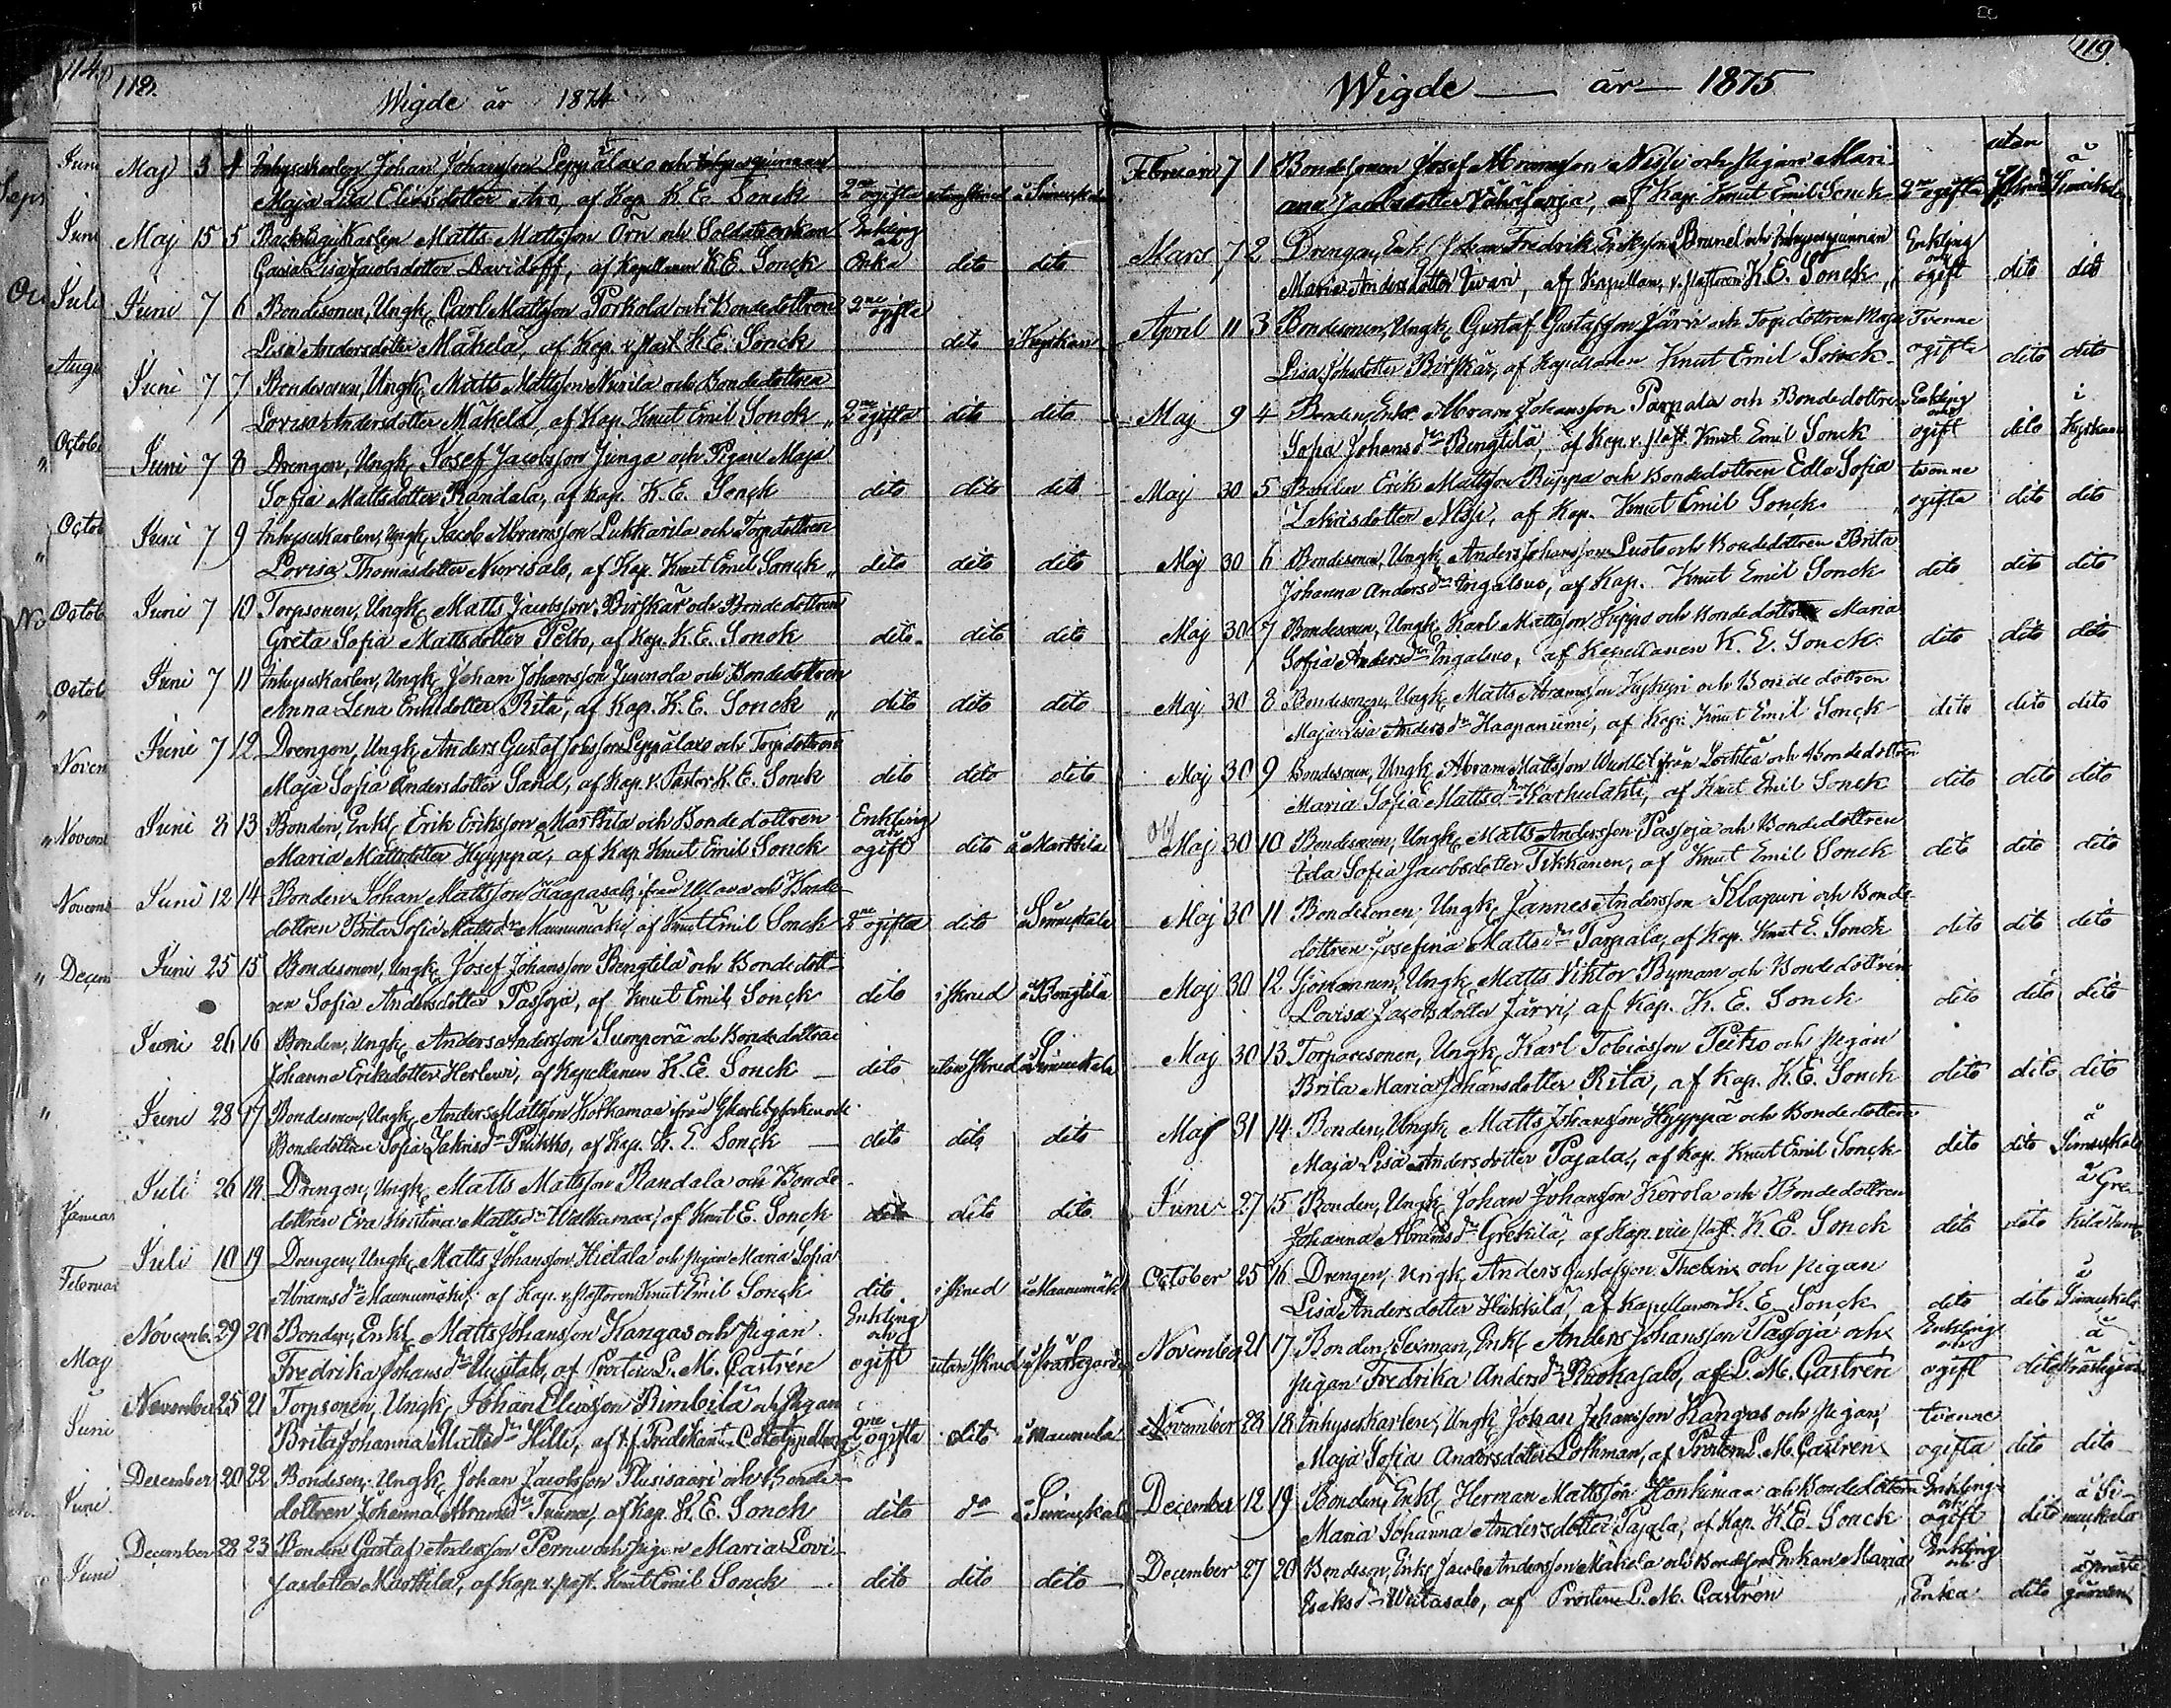 118.
Wigde år 1874
Maj 3 4 Inhyseskarlen Johan Johansson Leppälaxo och
Maja Lisa Eliasdotter Aro, af Kap. K E Sonck 2ne ogifta utan skrud å Simuskala
Maj 15 5 Matts Mattsson Örn och Soldatenkan Enkling och
Caisa Lisa Jacobsdotter Davidoff, af Kapellanen K.E. Sonck Enka dito dito
Juni 7 6 Bondesonen, Ungk. Carl Mattsson Porkola och Bondedottren 2ne ogifta
Lisa Andersdotter Mäkelä, af Kap. v. Past. K.E. Sonck dito i Kyrkan
Juni 7 7 Bondesonen, Ungk. Matts Mattsson Niirila och Bondedottren
Lovisa Andersdotter Mäkelä, af Kap. Knut Emil Sonck „ 2ne ogifta dito dito
Juni 7 8 Drengen, Ungk. Josef Jacobsson Junga och Pigan Maja
Sofia Mattsdotter Randala, af Kap. K. E. Sonck dito dito dito
Juni 7 9 Inhyseskarlen, Ungk. Jacob Abramsson Lukkarila och Torpdottren
Lovisa Thomasdotter Norrsalo, af Kap. Knut Emil Sonck „ dito dito dito
Juni 7 10 Torpsonen, Ungk. Matts Jacobsson Birskär och Bondedottren
Greta Sofia Mattsdotter Pelto, af Kap. K. E. Sonck dito dito dito
Juni 7 11 Inhyseskarlen, Ungk. Johan Johansson Junnola och Bondedottren
Anna Lena Eriksdotter Rita, af Kap. K. E. Sonck „ dito dito dito
Juni 7 12 Drengen, Ungk. Anders Gustaf Johsson Leppälaxo och Torpdottren
Maja Sofia Andersdotter Sand, af Kap. v. Pastor K. E. Sonck dito dito dito
Juni 8 13 Bonden, Enkl. Erik Eriksson Marttila och Bondedottren Enkling och
Maria Mattsdotter Hyyppä, af Kap. Knut Emil Sonck ogift dito å Marttila
Juni 12 14 Bonden Johan Mattsson Haapasalo, från Ullava och Bonde-
dottren Brita Sofia Mattsdr Maunumäki, af Knut Emil Sonck 2ne ogifta dito å Simuskala
Juni 25 15 Bondesonen, Ungk. Josef Johansson Bengtilä och Bondedott-
ren Sofia Andersdotter Passoja, af Knut Emil Sonck dito i skrud å Bengtilä
Juni 26 16 Bonden, Ungk. Anders Andersson Sunperä och Bondedottren
Johanna Eriksdotter Herlewi, af Kapellanen K.E. Sonck dito utan skrud å Simuskala
Juni 28 17 Bondesonen, Ungk. Anders Mattsson Korkamaa ifrån och
Bondedottren Sofia Zakrisdr Prikko, af Kap. K. E. Sonck dito dito dito
Juli 26 18 Drengen, Ungk. Matts Mattsson Randala och Bonde-
dottren Eva Kristina Mattsdr Walkamaa, af Knut E. Sonck dito dito dito
Juli 10 19 Drengen, Ungk. Matts Johansson Hietala och pigan Maria Sofia
Abramsdr Maunumäki, af Kap. v. Pastoren Knut Emil Sonck dito i skrud å Maunumäki
Novemb. 29 20 Bonden, Enkl. Matts Johansson Kangas och pigan Enkling och
Fredrika Johansdr Uusitalo, af Prosten L. M. Castrén ogift utan skrud å Prästegården
November 25 21 Torpsonen, Ungk. Johan Eliasson Rimbilä och Pigan
Brita Johanna Mattsdr Hilli, af 2ne ogifta dito å Maunula
December 20 22 Bondeson, Ungk. Johan Jacobsson Plusisaari och Bonde-
dottren Johanna Abramsdr Tunna, af Kap. K. E. Sonck dito do å Simuskala
December 28 23 Bonden Gustaf Andersson Pernu och pigan Maria Lovi-
sasdotter Marttila, af Kap. v. past. Knut Emil Sonck dito dito dito
119.
Wigde år 1875
Februari 7 1 Bondesonen Josef Abramsson Nisse och Pigan Mari-
ana Jacobsdotter Vähäsarja, af Kap. Knut Emil Sonck 2ne ogifta utan skrud å Simuskala
Mars 7 2 Drengen, Enk. Johan Fredrik Eriksson Brunel och Inhysesqvinnan Enkling och
Maria Andersdotter Tuvari, af Kapellan, v. Pastoren K.E. Sonck „ ogift dito dito
April 11 3 Bondesonen, Ungk. Gustaf Gustafsson Järvi och Torpdottren Maja Tvenne
Lisa Johsdotter Birskär, af Kapellanen Knut Emil Sonck ogifta dito dito
Maj 9 4 Bonden, Enkl. Abram Johansson Parpala och Bondedottren Enkling och i
Sofia Johansdr Bengtilä, af Kap. v. past. Knut Emil Sonck ogift dito Kyrkan
Maj 30 5 Bonden Erik Mattsson Rippa och Bondedottren Edla Sofia tvenne
Zakrisdotter Nisse, af Kap. Knut Emil Sonck ogifta dito dito
Maj 30 6 Bondesonen, Ungk. Anders Johansson Luoto och Bondedottren Brita
Johanna Andersdr Ingalsuo, af Kap. Knut Emil Sonck dito dito dito
Maj 30 7 Bondesonen, Ungk. Karl Mattsson Kippo och Bondedottren Maria
Sofia Andersdr Ingalsuo, af Kapellanen K. E. Sonck dito dito dito
Maj 30 8 Bondesonen, Ungk. Matts Abramsson och Bondedottren
Maja Lisa Andersdr Haapaniemi, af Kap. Knut Emil Sonck dito dito dito
Maj 30 9 Bondesonen, Ungk. Abram Mattsson Wuollet från Lochteå och Bondedottren
Maria Sofia Mattsdr Karhulahti, af Knut Emil Sonck dito dito dito
Maj 30 10 Bondesonen, Ungk. Matts Andersson Passoja och Bondedottren
Ida Sofia Jacobsdotter Tikkanen, af Knut Emil Sonck dito dito dito
Maj 30 11 Bondesonen, Ungk. Jannes Andersson Klapuri och Bonde-
dottren Josefina Mattsdr Parpala, af Kap. Knut E. Sonck dito dito dito
Maj 30 12 Sjömannen, Ungk. Matts Viktor Byman och Bondedottren
Lovisa Jacobsdotter Järvi, af Kap. K. E. Sonck dito dito dito
Maj 30 13 Torparesonen, Ungk. Karl Tobiasson Peitso och pigan
Brita Maria Johansdotter Rita, af Kap. K.E. Sonck dito dito dito
Maj 31 14 Bonden, Ungk. Matts Johansson Hyyppä och Bondedottren å
Maja Lisa Andersdotter Pajala, af Kap. Knut Emil Sonck dito dito Simuskala
Juni 27 15 Bonden, Ungk. Johan Johansson Korola och Bondedottren å Gre-
Johanna Abramsdr Grekilä, af Kap. vice past. K. E. Sonck dito dito
October 25 16 Drengen, Ungk. Anders Gustafsson Thelin och pigan å
Lisa Andersdotter Hiekkilä, af Kapellanen K. E. Sonck dito dito Simuskala
November 21 17 Bonden, Sexman, Enkl. Anders Johansson Passoja och Enkling och å
pigan Fredrika Andersdr Ruokasalo, af L. M. Castrén ogift dito Prästegården
November 28 18 Inhyseskarlen, Ungk. Johan Johansson Kangas och pigan tvenne
Maja Sofia Andersdotter Lothman, af Prosten L. M. Castrén ogifta dito dito
December 12 19 Bonden, Enkl. Herman Mattsson Honkimaa och Bondedottren Enkling och å Si-
Maria Johanna Andersdotter Pajala, af Kap. K.E. Sonck ogift dito muskala
December 27 20 Bondeson, Enkl. Jacob Andersson Mäkelä och Enkan Maria Enkling och å präste-
Isaksdr Wiitasalo, af Prosten L. M. Castrén Enka dito gården